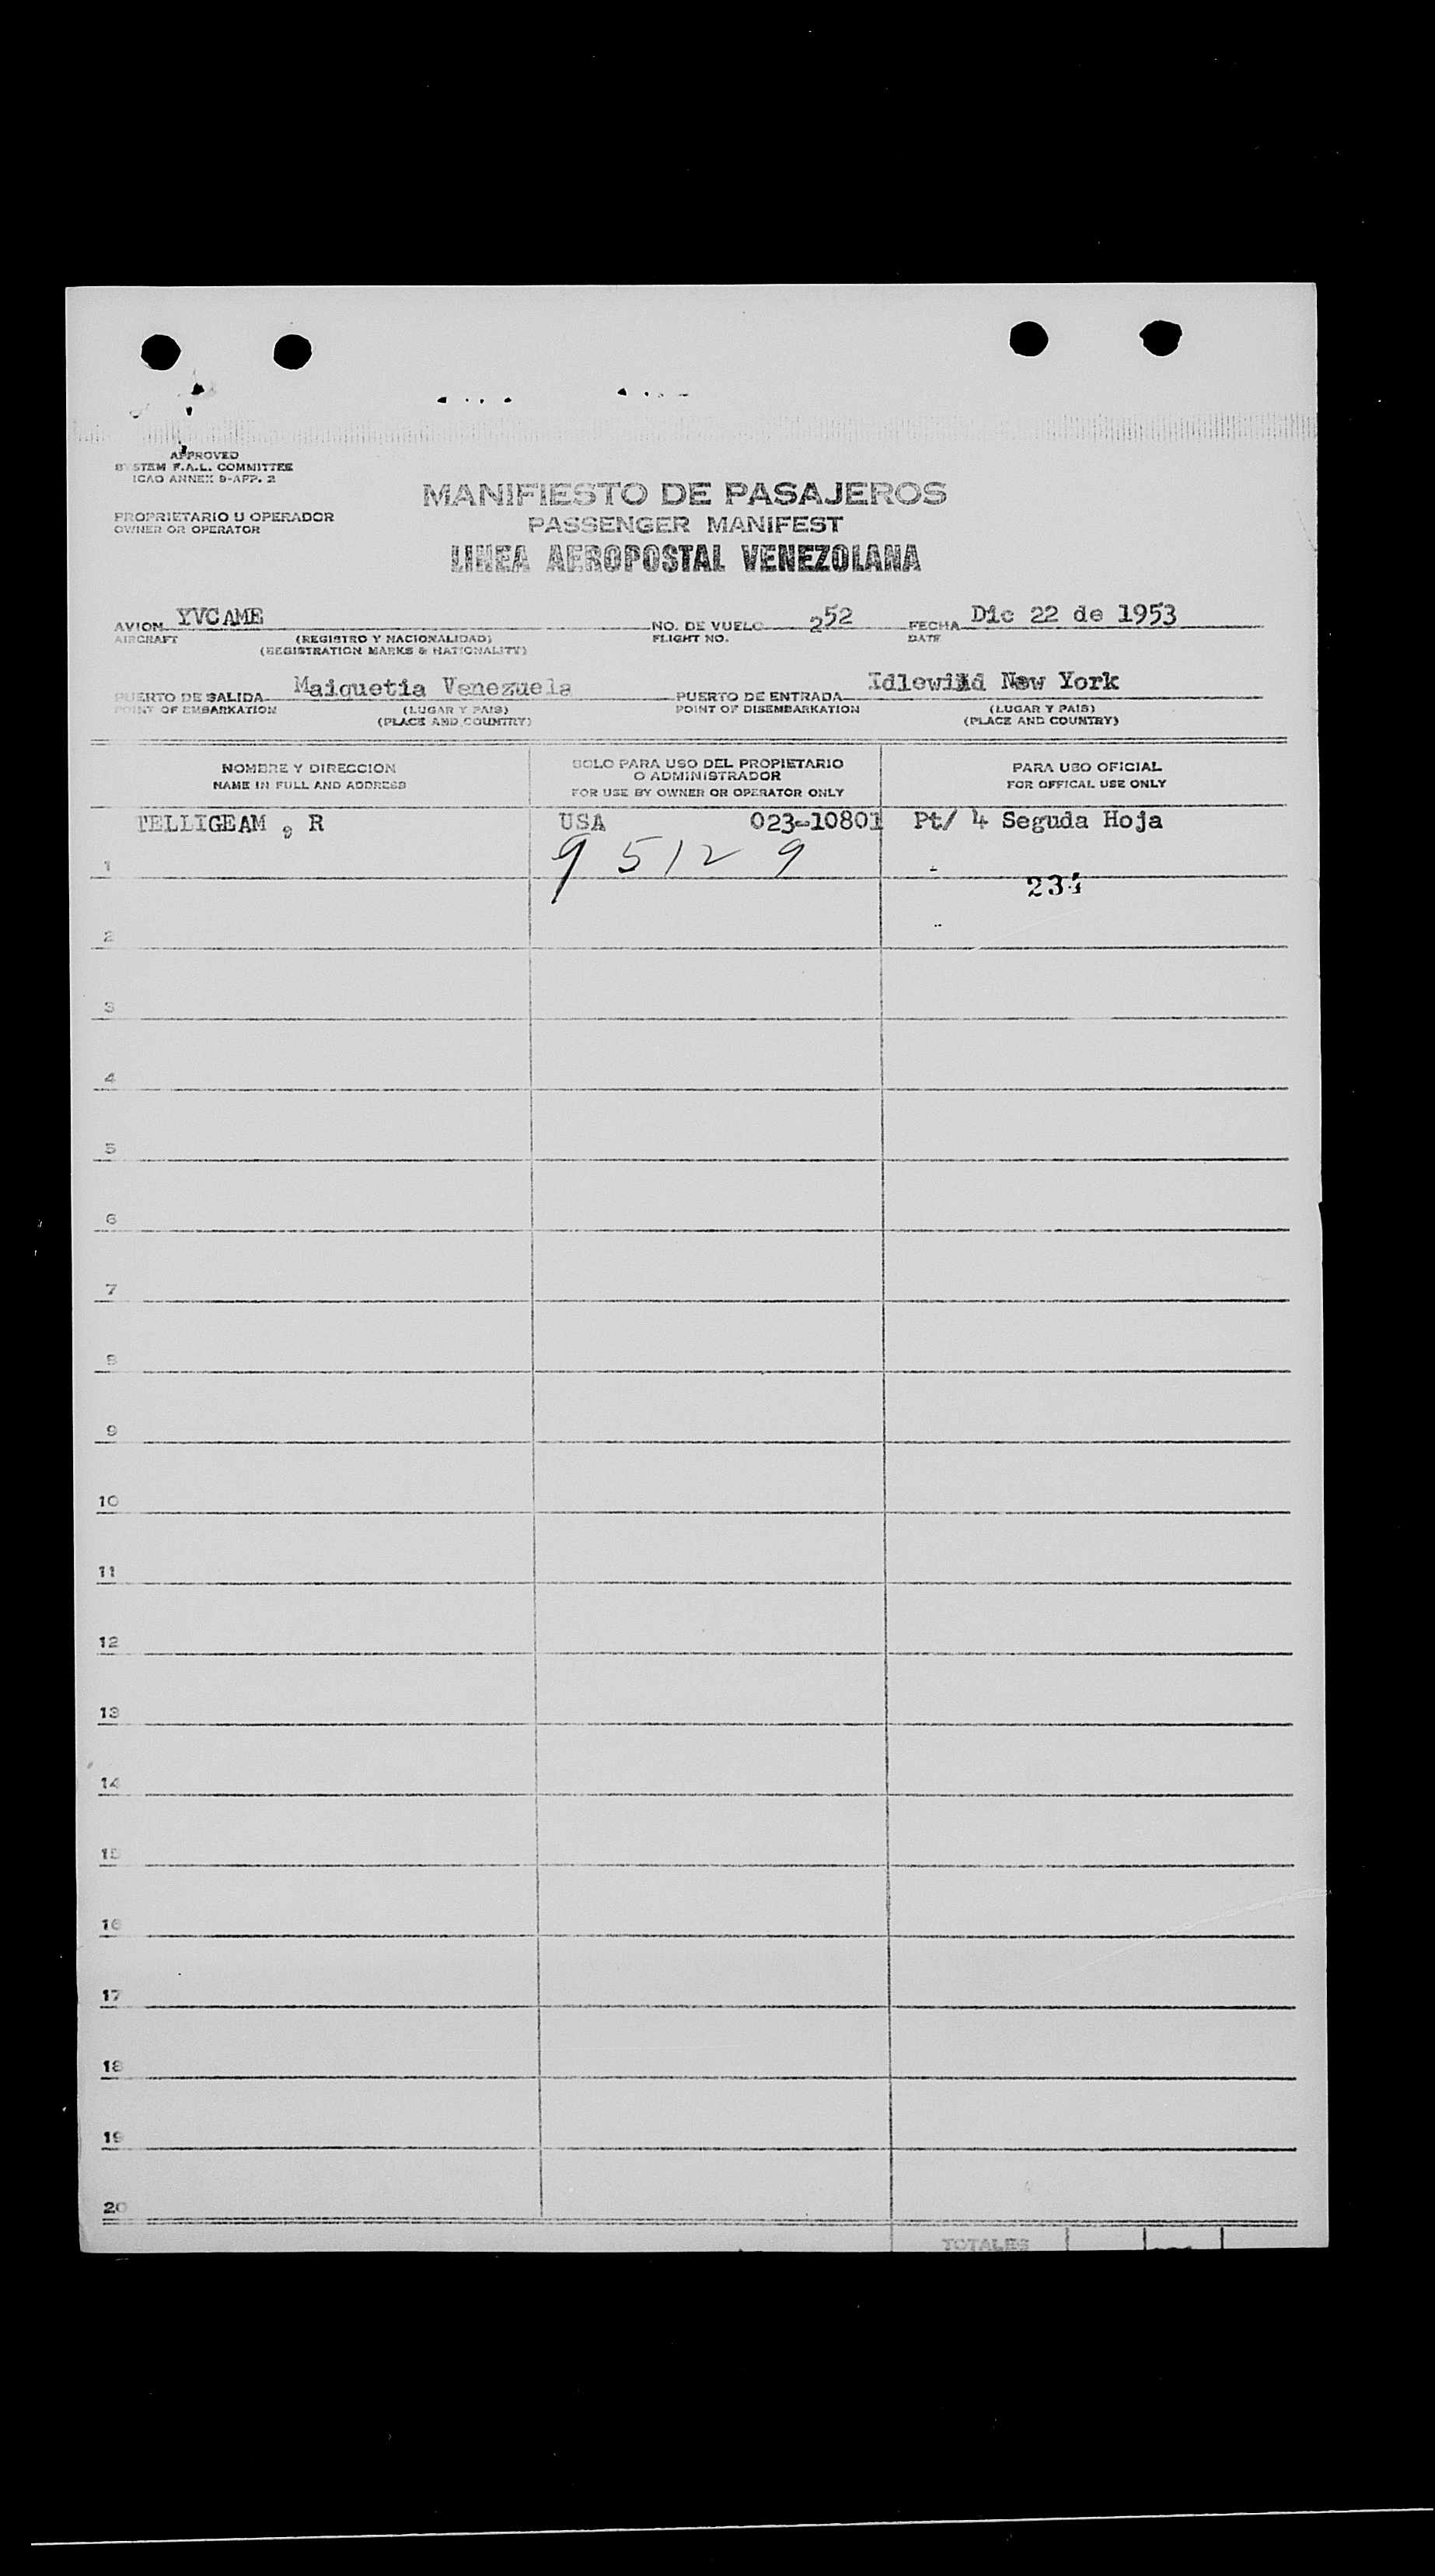 APPROVED
SYSTEM F.A.L. COMMITTEE
ICAO ANNEX 9-APP. 2
MANIFIESTO DE PASAJEROS
PROPRIETARIO U OPERADOR
OWNER OR OPERATOR
PASSENGER MANIFEST
LINEA AEROPOSTAL VENEZOLANA
AVION YVCAME NO. DE VUELO 252 FECHA Dic 22 de 1953
AIRCRAFT (REGISTRO Y NACIONALIDAD) FLIGHT NO. DATE
(REGISTRATION MARKS & NATIONALITY)
PUERTO DE SALIDA Maiquetia Venezuela PUERTO DE ENTRADA Idlewild New York
POINT OF EMBARKATION (LUGAR Y PAIS) POINT OF DISEMBARKATION (LUGAR Y PAIS)
(PLACE AND COUNTRY) (PLACE AND COUNTRY)
NOMBRE Y DIRECCION
NAME IN FULL AND ADDRESS
SOLO PARA USO DEL PROPIETARIO
O ADMINISTRADOR
FOR USE BY OWNER OR OPERATOR ONLY
PARA USO OFICIAL
FOR OFFICAL USE ONLY
TELLIGEAM , R USA 023-10801 Pt/ 4 Seguda Hoja
1 95129
234
2
3
4
5
6
7
8
9
10
11
12
13
14
15
16
17
18
19
20
TOTALES